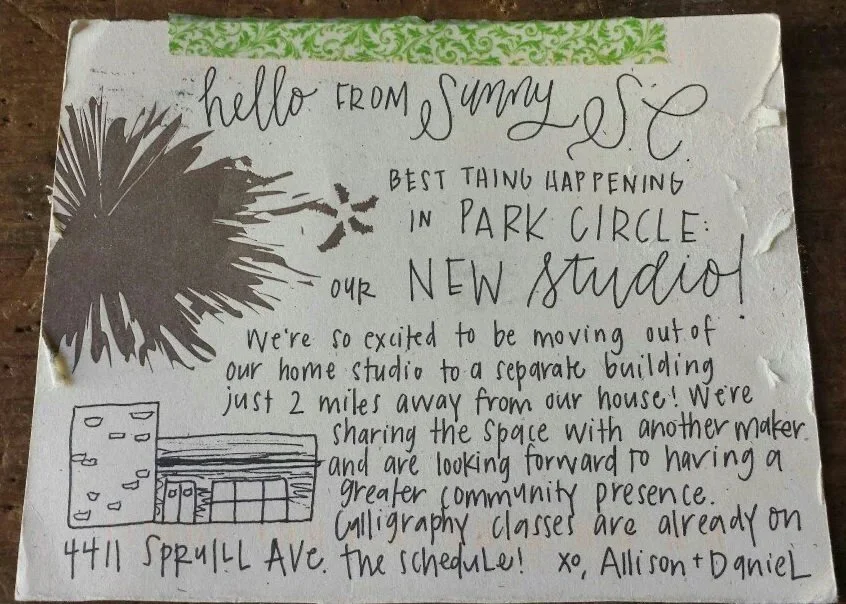 hello FROM Sunny S.C.
BEST THING HAPPENING
IN PARK CIRCLE:
OUR NEW studio!
We're so excited to be moving out of
our home studio to a separate building
just 2 miles away from our house! We're
sharing the space with another maker
and are looking forward to having a
greater community presence.
Calligraphy classes are already on
4411 SPRUILL AVE. the schedule! xo, Allison + Daniel